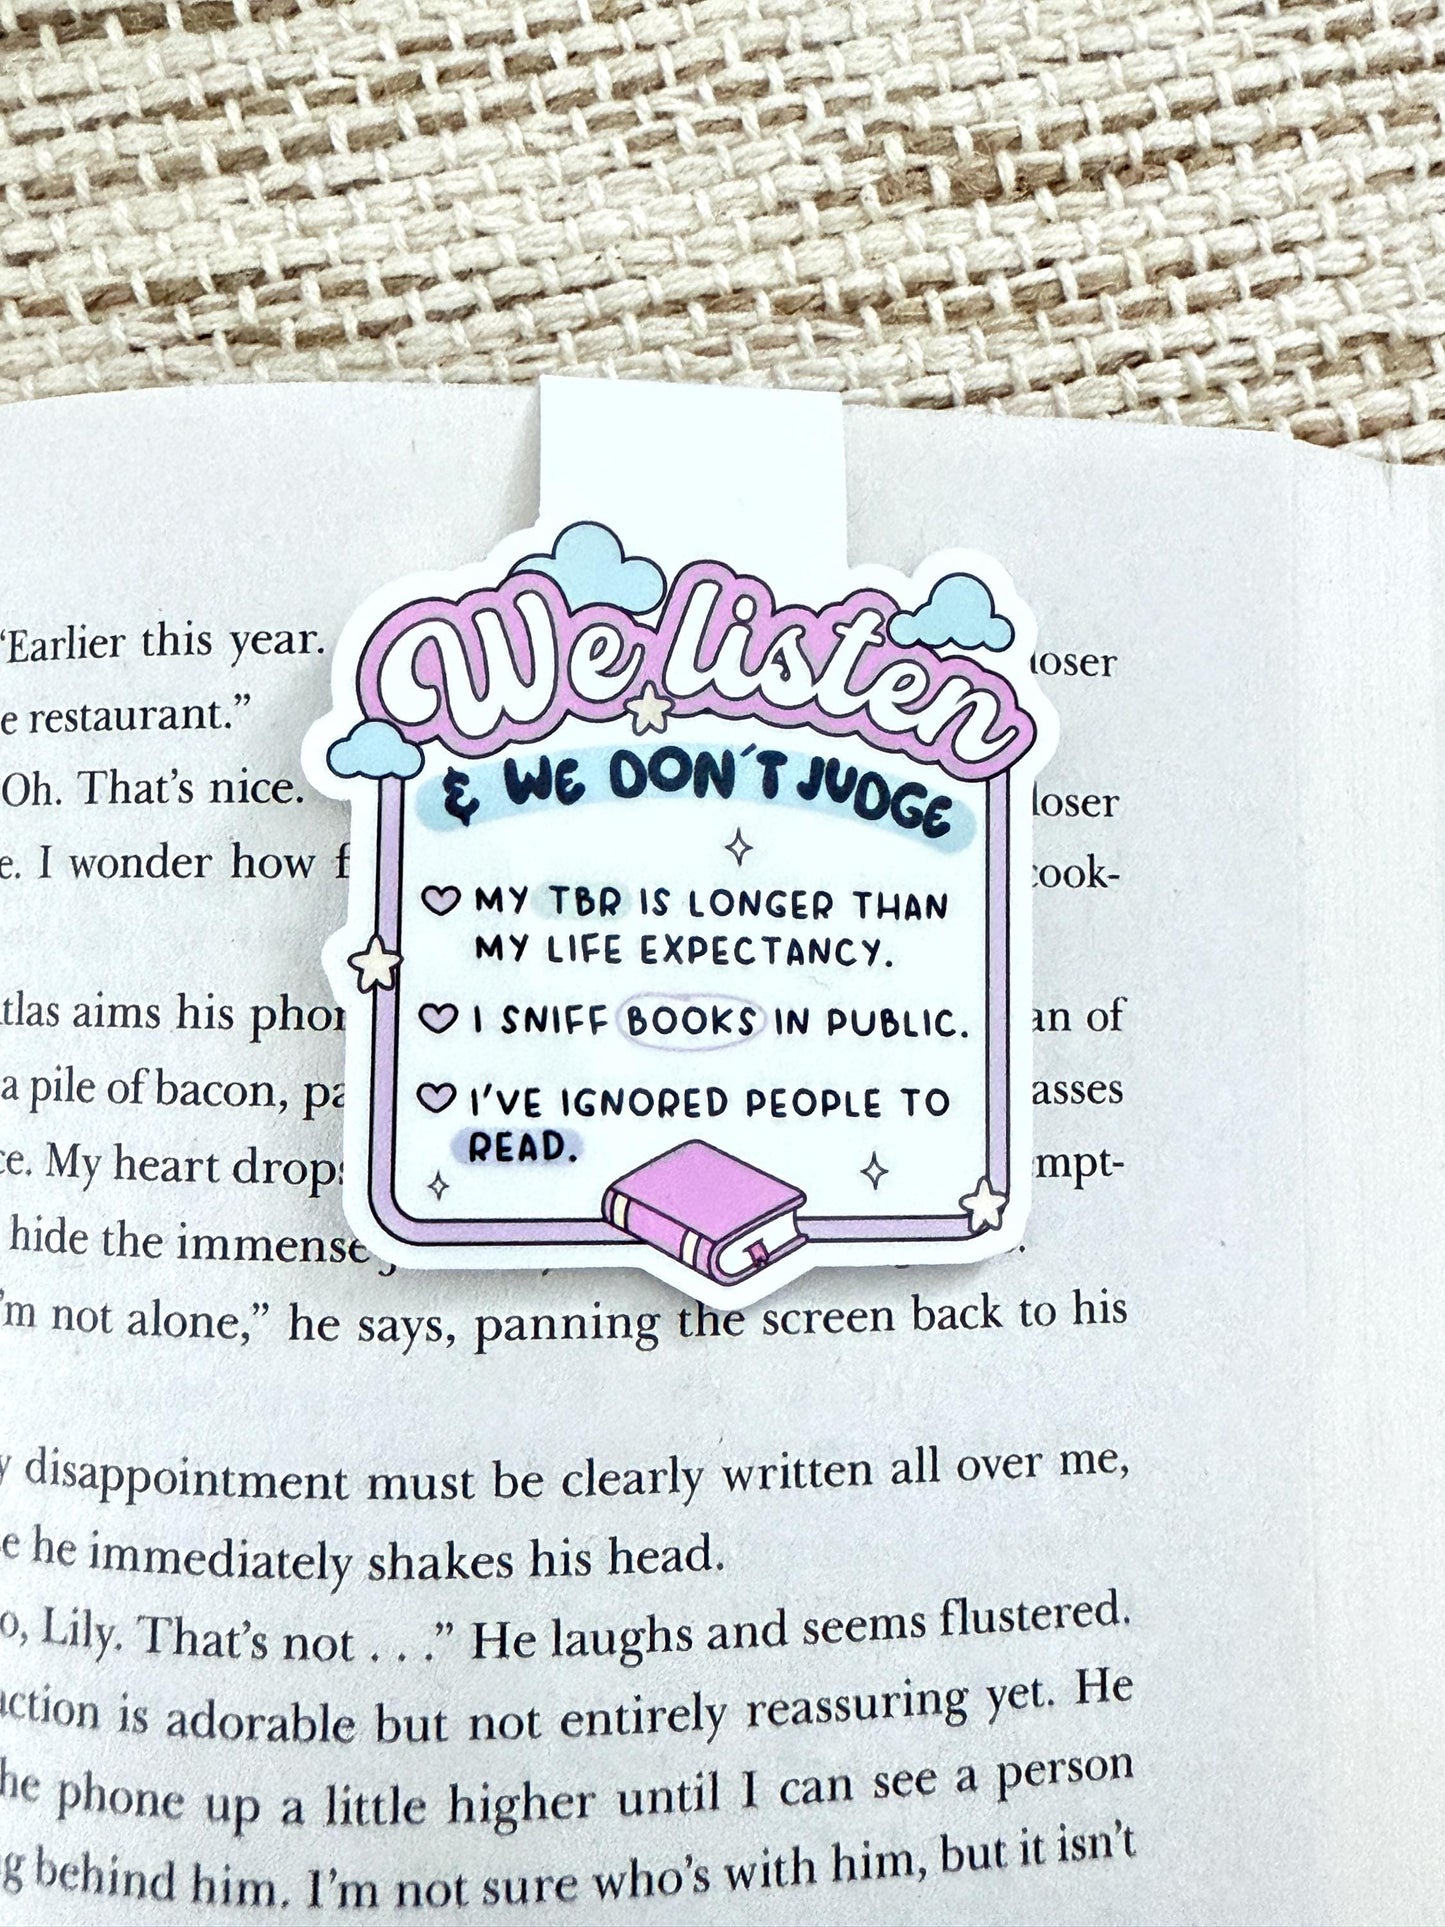 We listen
& WE DON'T JUDGE
MY TBR IS LONGER THAN
MY LIFE EXPECTANCY.
I SNIFF BOOKS IN PUBLIC.
I'VE IGNORED PEOPLE TO
READ.
"Earlier this year. loser
e restaurant."
Oh. That's nice. loser
e. I wonder how cook-
tlas aims his an of
a pile of bacon, asses
ce. My heart mpt-
hide the immense
'm not alone," he says, panning the screen back to his
y disappointment must be clearly written all over me,
e he immediately shakes his head.
o, Lily. That's not . . ." He laughs and seems flustered.
action is adorable but not entirely reassuring yet. He
he phone up a little higher until I can see a person
g behind him. I'm not sure who's with him, but it isn't